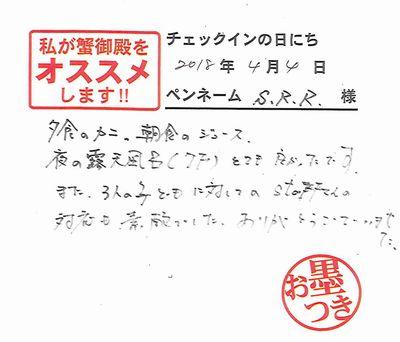 私が蟹御殿を
オススメ
します!!
チェックインの日にち
2018年4月4日
ペンネーム S.R.R. 様
夕食のカニ、朝食のジュース、
夜の露天風呂(7F)とても良かったです
また、3人の子どもに対してのstaffさんの
対応も素敵でした。ありがとうございました。
お墨つき